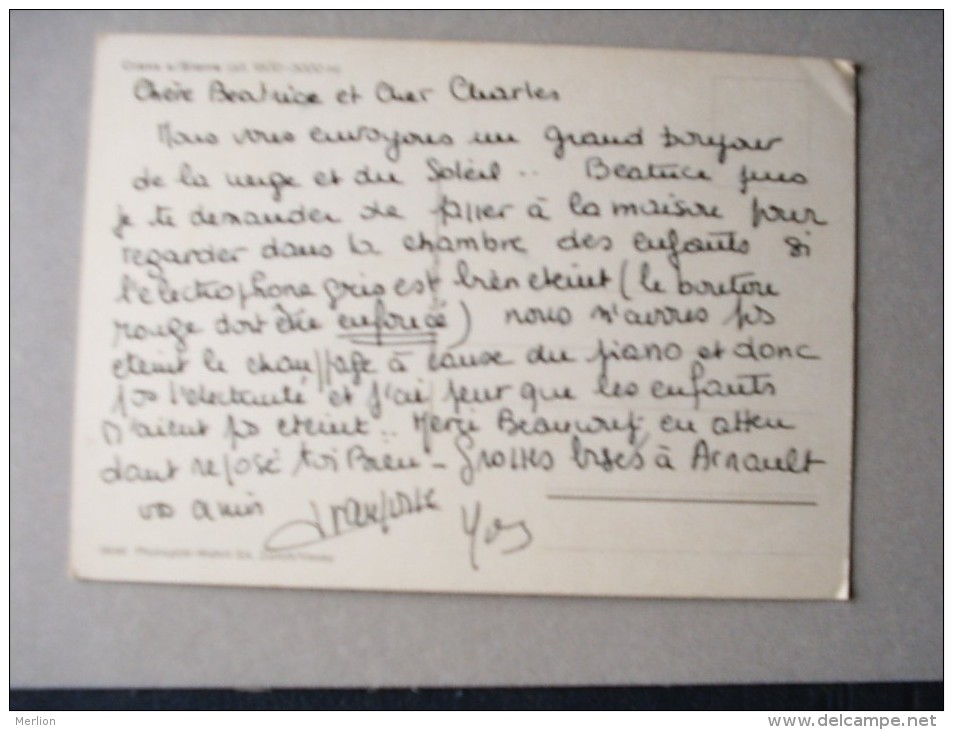 Crans s/Sierre (alt. 1500-3000 m)
Chère Beatrice et Cher Charles
Nous vous envoyons un grand bonjour
de la neige et du Soleil .. Beatrice puis
je te demander de passer à la maison pour
regarder dans la chambre des enfants si
l'electrophone gris est bien eteint (le bouton
rouge doit être enfoncé) nous n'avons pas
eteint le chauffage à cause du piano et donc
pas l'electricité et j'ai peur que les enfants
n'aient pas eteint .. Merci Beaucoup, en atten
dant repose toi Bien - Grosses bises à Arnault
vos amis Françoise
Yves
Merlion
www.delcampe.net